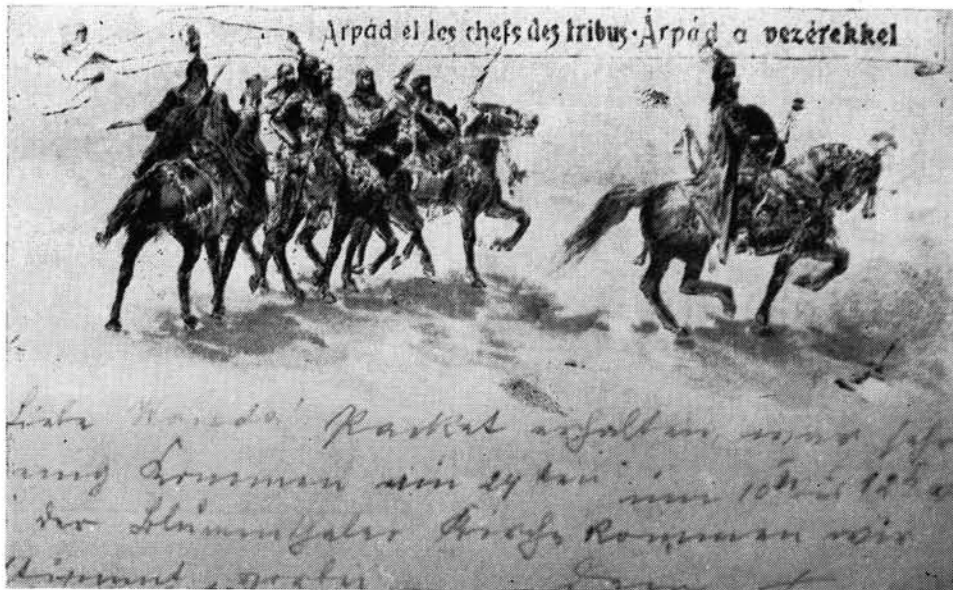 Arpád el les chefs des tribus·Arpád a vezérekkel
Liebe Wanda! Packet erhalten, war sehr
kommen am 29ten um 10h bis 12h
der Blumenthaler Kirche kommen wir